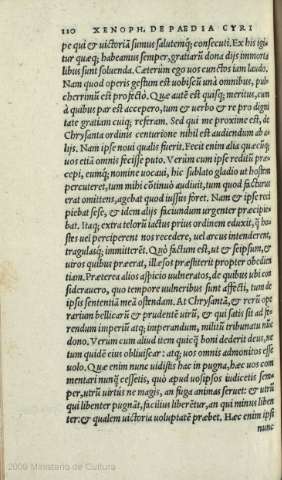 110 XENOPH. DE PAEDIA CYRI
pe qui & uictoriã sumus salutemq́; consecuti. Ex his igi
tur quæq; habeamus semper, gratiarũ dona dijs immorta
libus sunt soluenda. Cæterùm ego uos cunctos iam laudo.
Nam quod operis gestum est uobiscũ unà omnibus, pul
cherrimũ est profectò. Que autẽ est quisq; meritus, cum
à quibus par est accepero, tum & uerbo & re pro digni
tate gratiam cuiq; referam. Sed qui me proxime est, de
Chrysanta ordinis centurione nihil est audiendum ab a-
lijs. Nam ipse noui qualis fuerit. Fecit enim alia quæcũq;
uos etiã omnis fecisse puto. Verùm cum ipse reditũ præ-
cepi, eumq́; nomine uocaui, hic sublato gladio ut hostem
percuteret, tum mihi cõtinuò audiuit, tum quod facturus
erat omittens, agebat quod iussus foret. Nam & ipse reci
piebat sese, & idem alijs faciundum urgenter præcipie
bat. Itaq; extra telorũ iactus prius ordinem eduxit, q̃ ho
stes uel perciperent nos recedere, uel arcus intenderent,
tragulasq́; immitterẽt. Quò factum est, ut & seipsum, &
uiros quibus præerat, illæsos præstiterit propter obedien
tiam. Præterea alios aspicio uulneratos, de quibus ubi con
siderauero, quo tempore uulneribus sint affecti, tum de
ipsis sententiã meã ostendam. At Chrysantã, & rerũ ope
rariam bellicarũ & prudentẽ uirũ, & qui satis sit ad ſe-
rendum imperiũ atq; imperandum, militũ tribunatu nũc
dono. Verùm cum aliud item quicq̃ boni dederit deus, ne
tum quidẽ eius obliuiscar: atq; uos admonitos esse
uolo. Quæ enim nunc uidistis hac in pugna, hæc uos com
mentari nunq̃ cessetis, quò apud uosipsos iudicetis sem-
per, utrũ uirtus ne magis, an fuga animas seruet: & utrũ
qui libenter pugnãt, facilius liberẽtur, an qui minus liben
ter: & qualem uictoria uoluptatẽ præbet. Hæc enim ipsi
nunc
2009 Ministerio de Cultura